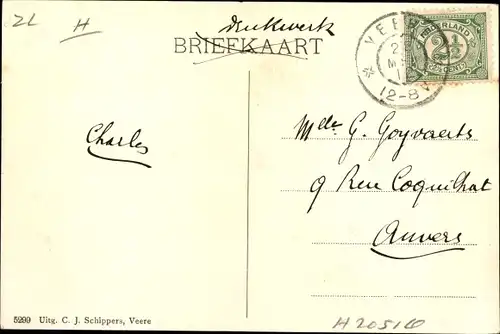 2L H drukwerk
BRIEFKAART
VEERE
12-8V
NEDERLAND
2½
CENT
Charles
Melle G. Goyvaerts
9 Rue Coquilhat
Anvers
5299 Uitg. C. J. Schippers, Veere
H20510